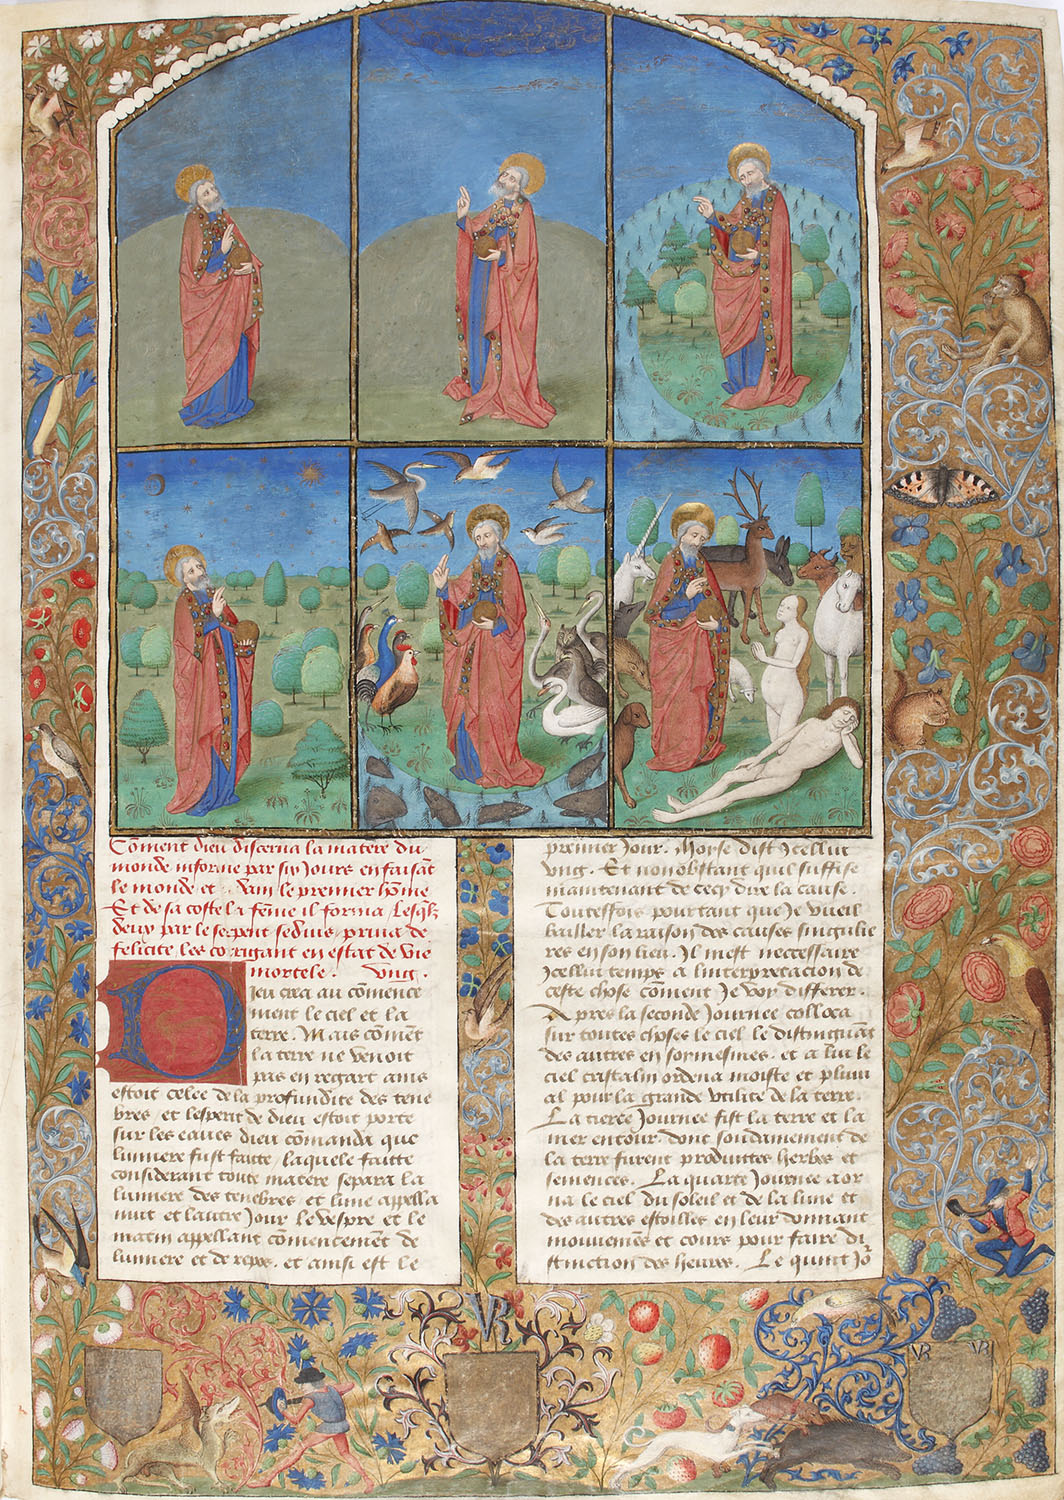 Comēt dieu discerna la matere du
monde informe par six Jours en faisāt
le monde et Adam le premier hōme
Et de sa coste la fēme il forma / Lesqlz
deux par le serpent sediuis / priua de
felicite / les corrigant en estat de vie
mortele . Vng .
Dieu crea au cōmence
ment le ciel et la
terre . Mais cōmēt
la terre ne venoit
pas en regart ains
estoit celee de la profundite des tene
bres / et lesperit de dieu estoit porte
sur les eaues dieu cōmanda que
lumiere fust faitte / laquele faitte
considerant toute matere separa la
lumiere des tenebres et lune appella
nuit et lautre Jour le vespre et le
matin appellant cōmencement de
lumiere et de repos . et ainsi est le
premier Jour . Moyse dist Jcelluy
vng . Et nonobstant quil suffise
maintenant de cecy dire la cause .
Touteffois pourtant que Je vueil
bailler la raison des causes singulie
res en son lieu . Jl mest neccessaire
Jcellui temps a linterpretacion de
ceste chose cōment Je voy differer .
Apres la seconde Journee colloca
sur toutes choses le ciel le distinguāt
des autres en formesines . et a lui le
ciel cristalin ordena moiste et pluui
al pour la grande vtilite de la terre .
La tierce Journee fist la terre et la
mer entour . dont soudainement de
la terre furent produittes herbes et
semences . La quarte Journee aor
na le ciel du soleil et de la lune et
des autres estoilles en leur donnant
mouuemēs et cours pour faire di
stinction des heures . Le quint Jor
VR
VR VR